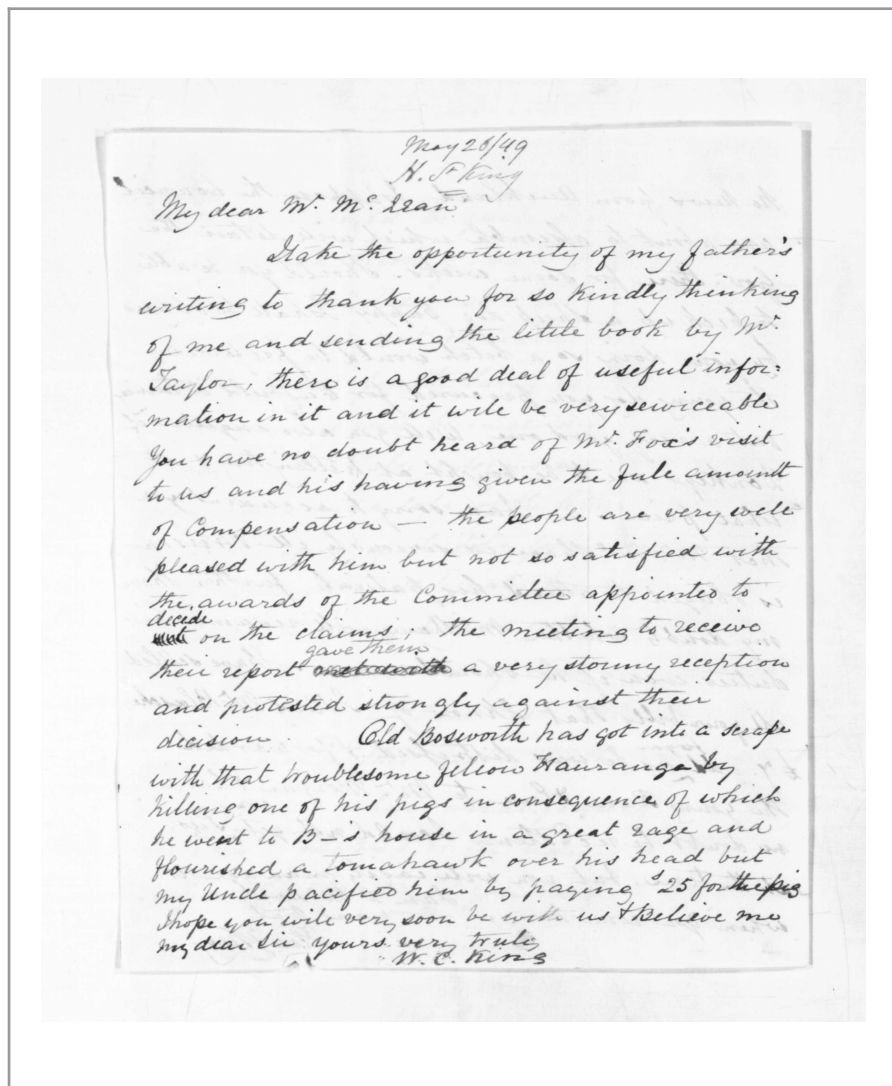 May 26/49
H. King
My dear Mr. McLean
I take the opportunity of my father's
writing to thank you for so kindly thinking
of me and sending the little book by Mr.
Taylor, there is a good deal of useful infor:
mation in it and it will be very serviceable
You have no doubt heard of Mr. Fox's visit
to us and his having given the full amount
of Compensation — the people are very well
pleased with him but not so satisfied with
the awards of the Committee appointed to
decide
on the claims; the meeting to receive
gave them
their report met with a very stormy reception
and protested strongly against their
decision. Old Bosworth has got into a scrape
with that troublesome fellow Hauranga by
killing one of his pigs in consequence of which
he went to B—'s house in a great rage and
flourished a tomahawk over his head but
my Uncle pacified him by paying 25 for the pig
I hope you will very soon be with us & Believe me
my dear Sir yours very truly
W. C. King